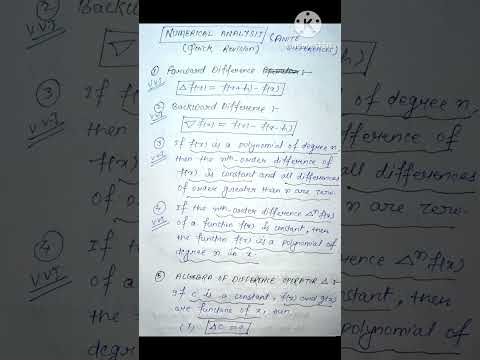 NUMERICAL ANALYSIS (FINITE
(Quick Revision) DIFFERENCES)
① Forward Difference :-
VVI
Δf(x) = f(x+h) - f(x)
② Backward Difference :-
VVI
∇f(x) = f(x) - f(x-h)
③ If f(x) is a polynomial of degree n,
VVI
then the nth-order difference of
f(x) is constant and all differences
of order greater than n are zero.
④ If the nth-order difference Δⁿf(x)
VVI
of a function f(x) is constant, then
the function f(x) is a polynomial of
degree n in x.
⑤ ALGEBRA OF DIFFERENCE OPERATOR Δ :-
If c is a constant, f(x) and g(x)
are functions of x, then
(i) Δc = 0
② Backwa
V.V.I
③ If f
VVI
then
f(x)
of o
④ If the
V.V.I
of a
the f
of degree n,
difference of
all differences
n are zero.
Δⁿf(x)
constant, then
polynomial of